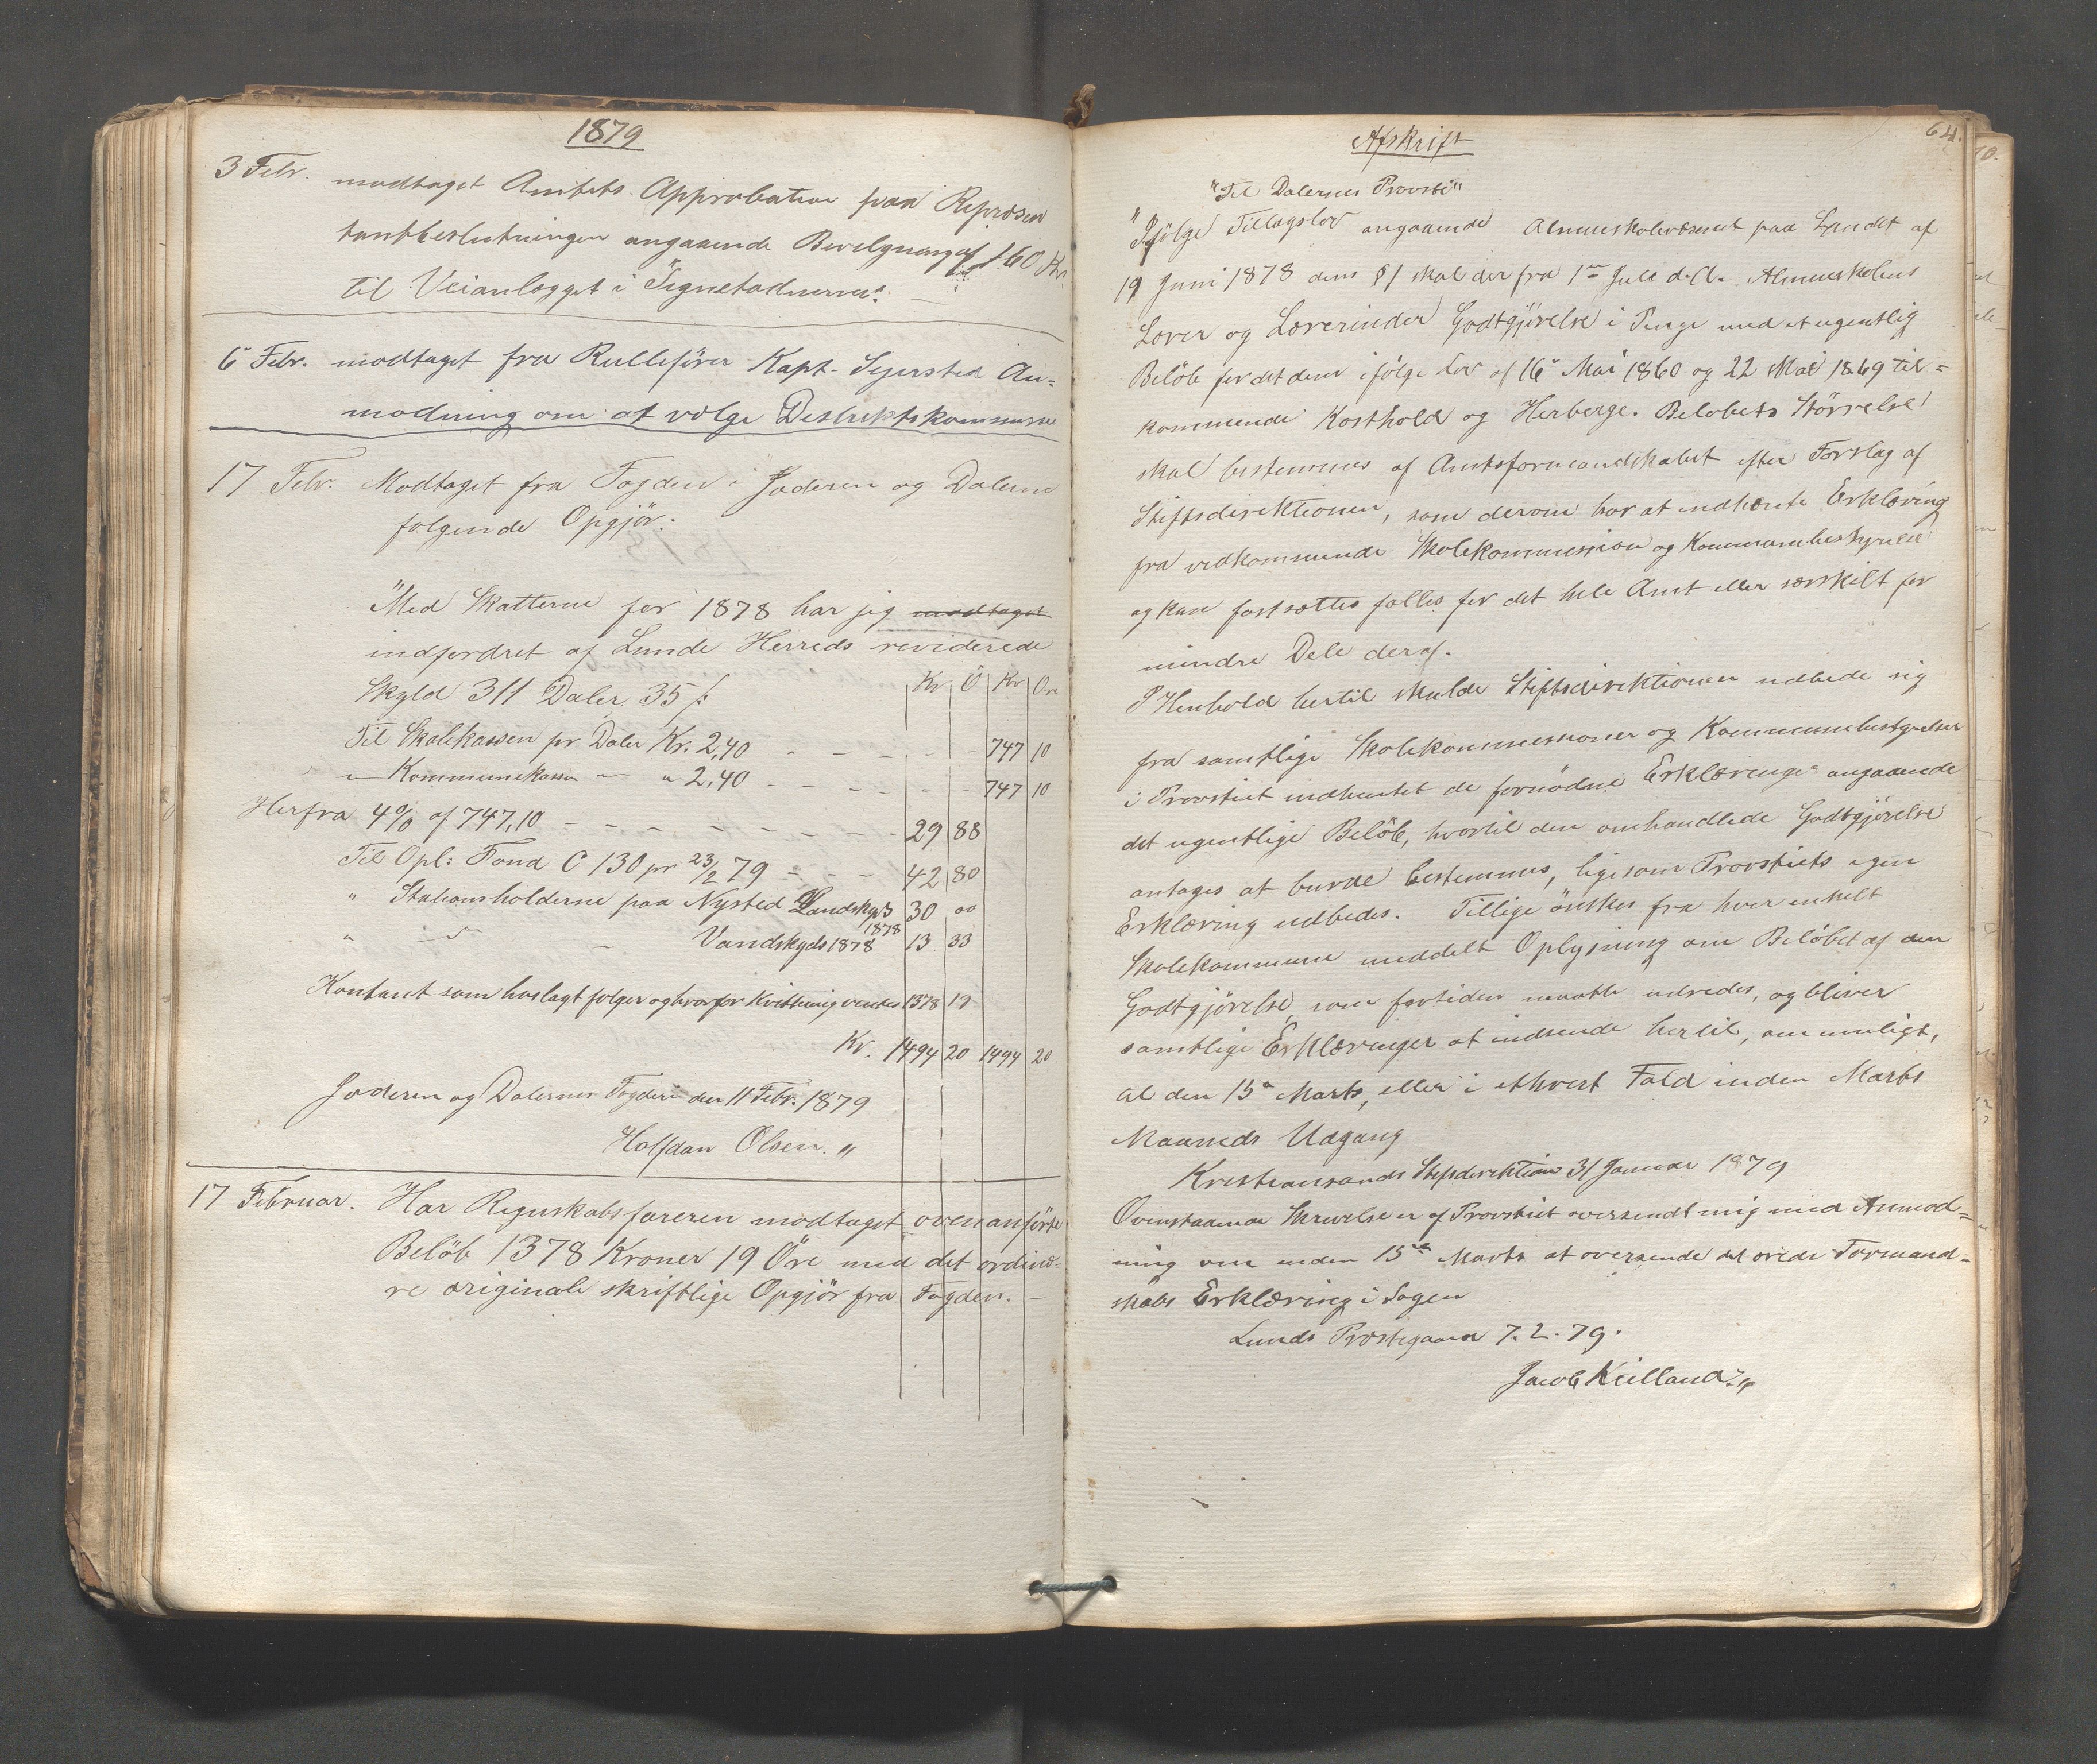 1879
3 Febr. modtaget Amtets Approbation paa Repræsen
tantbeslutningen angaaende Bevilgning af 160 Kr.
til Veianlægget i "Tignestadmyren". —
6 Febr. modtaget fra Rulleförer Kapt. Sejersted An=
modning om at vælge Destriktskommissær
17 Febr. Modtaget fra Fogden i Jæderen og Dalerne
følgende Opgjör:
"Med Skatterne for 1878 har jeg modtaget
indfordret af Lunde Herreds reviderede
Skyld 311 Daler 35 ß: Kr Ö Kr Öre
Til Skolekassen pr. Daler Kr: 2,40 - - - 747 10
— Kommunekassen — " 2,40 - - - 747 10
Herfra 4% af 747,10 - - - 29 88
Til Opl: Fond C 130 pr 23/2 79 - - - 42 80
" Stationsholderne paa Nysted Landskyds 1878 30 00
" — — Vandskyds 1878 13 33
Kontant som hoslagt følger og hvorfor Kvittering ventes 1378 19
Kr. 1494 20 1494 20
Jæderen og Dalernes Fogderi den 11 Febr. 1879
Halfdan Olsen. "
17 Februar. Har Regnskabsføreren modtaget ovenanförte
Belöb 1378 Kroner 19 Öre med det ordinæ=
re originale skriftlige Opgjör fra Fogden. —
64.
Afskrift
"Til Dalernes Provsti"
"Ifölge Tillægslov angaaende Almueskolevæsenet paa Landet af
19 Juni 1878 dens § 1 skal der fra 1ste Juli d.A. Almueskolens
Lærer og Lærerinder Godtgjörelse i Penge med et ugentlig
Belöb for det dem ifølge Lov af 16 Mai 1860 og 22 Mai 1869 til=
kommende Kosthold og Herberge. Belobets Störrelse
skal bestemmes af Amtsformandskabet efter Forslag af
Stiftsdirektionen, som derom har at indhente Erklæring
fra vedkommende Skolekommission og Kommunebestyrelse
og kan fastsættes fælles for det hele Amt eller særskilt for
mindre Dele deraf.
I Henhold hertil skulde Stiftsdirektionen udbede sig
fra samtlige Skolekommissioner og Kommunebestyrelser
i Provstiet indhentet de fornödne Erklæringer angaaende
det ugentlige Belöb, hvortil den omhandlede Godtgjörelse
antages at burde bestemmes, ligesom Provstiets egen
Erklæring udbedes. Tillige önskes fra hver enkelt
Skolekommune meddelt Oplysning om Belöbet af den
Godtgjörelse, som fortiden maatte udredes, og bliver
samtlige Erklæringer at indsende hertil, om muligt,
til den 15de Marts, eller i ethvert Fald inden Marts
Maaneds Udgang
Kristiansands Stiftsdirektion 31 Januar 1879
Ovenstaaende Skrivelse er af Provstiet oversendt mig med Anmod=
ning om inden 15de Marts at oversende det ærede Formand=
skabs Erklæring i Sagen
Lunds Præstegaard 7. 2. 79.
Jacob Kielland. "